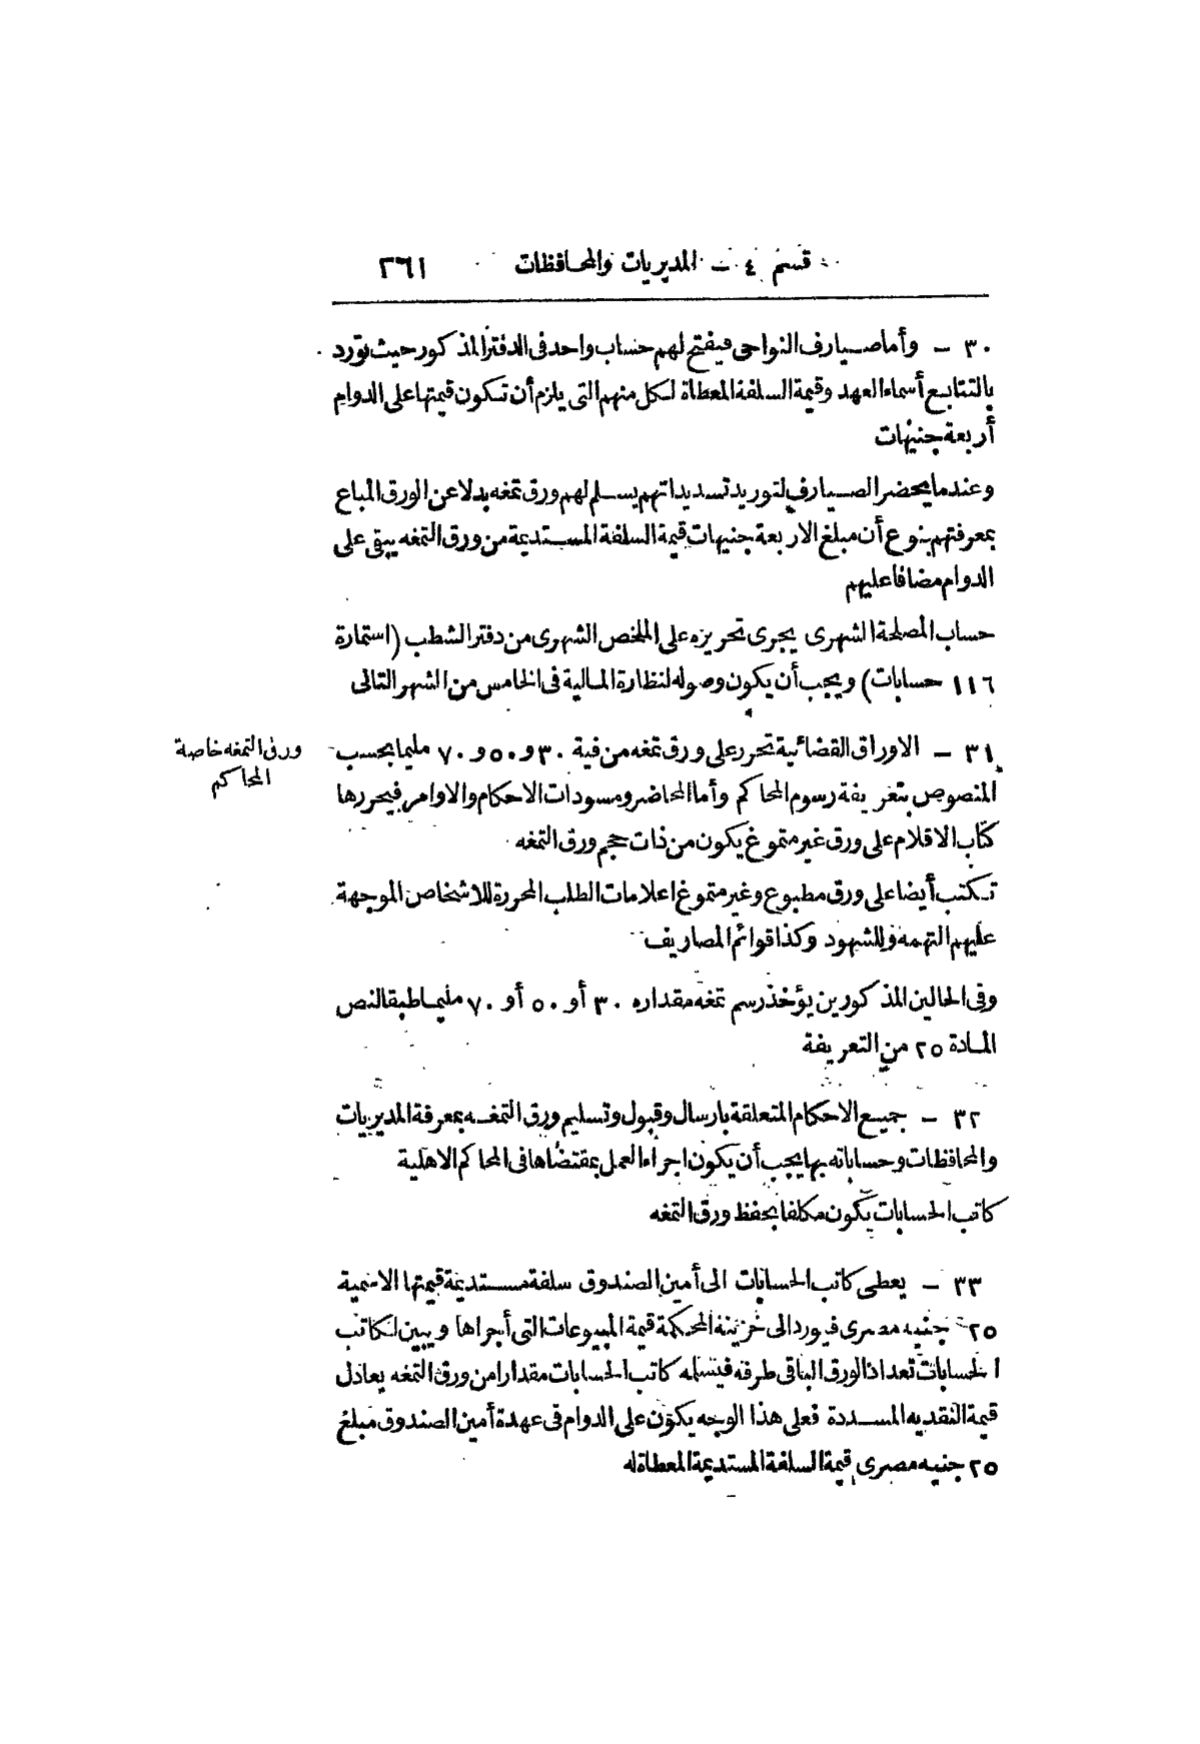 قسم ٤ – المديريات والمحافظات ٣٦١
٣٠ – وأما صيارف النواحى فيفتح لهم حساب واحد فى الدفتر المذكور حيث تورد
بالتتابع أسماء العهد وقيمة السلفة المعطاة لكل منهم التى يلزم أن تكون قيمتها على الدوام
أربعة جنيهات
وعندما يحضر الصيارف لتوريد تسديداتهم يسلم لهم ورق تمغه بدلا عن الورق المباع
بمعرفتهم بنوع أن مبلغ الاربعة جنيهات قيمة السلفة المستديمة من ورق التمغه يبقى على
الدوام مضافا عليهم
حساب المصلحة الشهرى يجرى تحريره على الملخص الشهرى من دفتر الشطب (استمارة
١١٦ حسابات) ويجب أن يكون وصوله لنظارة المالية فى الخامس من الشهر التالى
ورق التمغه خاصة
المحاكم
٣١ – الاوراق القضائية تحرر على ورق تمغه من فية ٣٠ و ٥٠ و ٧٠ مليما بحسب
المنصوص بتعريفة رسوم المحاكم وأما المحاضر ومسودات الاحكام والاوامر فيحررها
كتّاب الاقلام على ورق غير متموغ يكون من ذات حجم ورق التمغه
تكتب أيضا على ورق مطبوع وغير متموغ اعلامات الطلب المحررة للاشخاص الموجهة
عليهم التهمه وللشهود وكذا قوائم المصاريف
وفى الحالين المذكورين يؤخذ رسم تمغه مقداره ٣٠ أو ٥٠ أو ٧٠ مليما طبقا لنص
المادة ٢٥ من التعريفة
٣٢ – جميع الاحكام المتعلقة بارسال وقبول وتسليم ورق التمغه بمعرفة المديريات
والمحافظات وحساباته بها يجب أن يكون اجراء العمل بمقتضاها فى المحاكم الاهلية
كاتب الحسابات يكون مكلفا بحفظ ورق التمغه
٣٣ – يعطى كاتب الحسابات الى أمين الصندوق سلفة مستديمة قيمتها الاسمية
٢٥ جنيه مصرى فيورد الى خزينة المحكمة قيمة المبيوعات التى أجراها ويبين لكاتب
الحسابات تعداد الورق الباقى طرفه فيسلمه كاتب الحسابات مقدارا من ورق التمغه يعادل
قيمة النقديه المسددة فعلى هذا الوجه يكون على الدوام فى عهدة أمين الصندوق مبلغ
٢٥ جنيه مصرى قيمة السلفة المستديمة المعطاة له